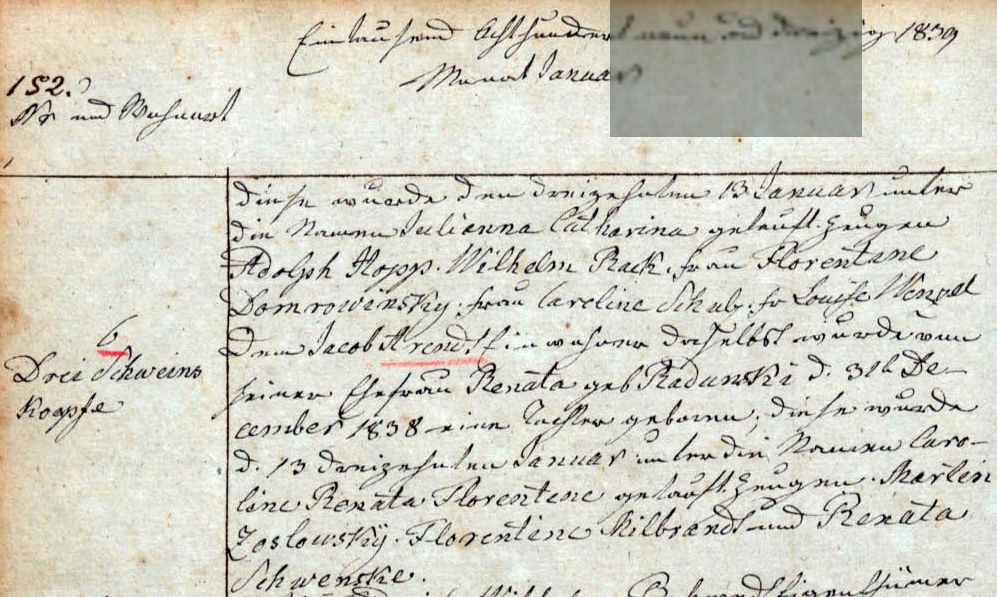 Eintausend Achthundert neun und dreißig 1839
Monat Januar
152.
Nr und Wohnort
diese wurde den dreizehnten 13 Januar unter
die Namen Julianna Catharina getauft. Zeugen
Adolph Hopp. Wilhelm Rack. frau Florentine
Domrowinsky. frau Careline Schulz. fr Louise Wenzel
6
Drei Schweins
Koepfe
Dem Jacob Arendt Einwohner daselbst wurde von
seiner Ehefrau Renata geb Radunski d. 31t De-
cember 1838 eine Tochter geboren, diese wurde
d. 13 dreizehnten Januar unter die Namen Caro-
line Renata Florentene getauft. Zeugen. Martin
Zoslowsky. Florentine Milbrandt und Renata
Schwenske.